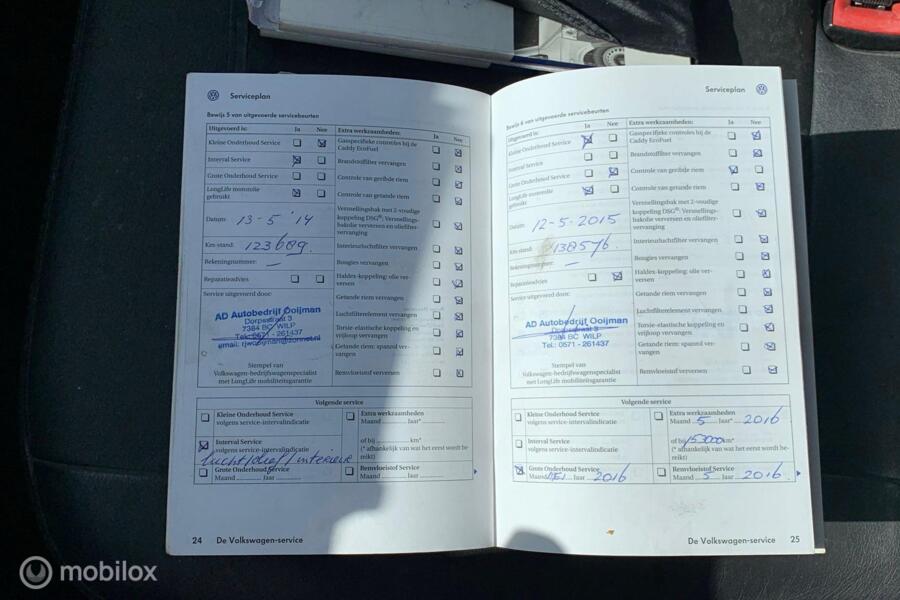 Serviceplan
Bewijs 5 van uitgevoerde servicebeurten
Uitgevoerd is: Ja Nee
Kleine Onderhoud Service
Interval Service
Grote Onderhoud Service
LongLife motorolie
gebruikt
Datum: 13-5 '14
Km-stand: 123689.
Rekeningnummer: —
Reparatieadvies
Service uitgevoerd door:
AD Autobedrijf Ooijman
Dorpsstraat 3
7384 BC WILP
Tel.: 0571 - 261437
Stempel van
Volkswagen-bedrijfswagenspecialist
met LongLife mobiliteitsgarantie
Extra werkzaamheden: Ja Nee
Gasspecifieke controles bij de
Caddy EcoFuel
Brandstoffilter vervangen
Controle van geribde riem
Controle van getande riem
Versnellingsbak met 2-voudige
koppeling DSG®: Versnellings-
bakolie verversen en oliefilter-
vervanging
Interieurluchtfilter vervangen
Bougies vervangen
Haldex-koppeling: olie ver-
versen
Getande riem vervangen
Luchtfilterelement vervangen
Torsie-elastische koppeling en
vrijloop vervangen
Getande riem: spanrol ver-
vangen
Remvloeistof verversen
Volgende service
Kleine Onderhoud Service
volgens service-intervalindicatie
Interval Service
volgens service-intervalindicatie
lucht/olief/interieur
Grote Onderhoud Service
Maand ........ Jaar ........
Extra werkzaamheden
Maand ........ Jaar*
of bij ........ km*
(* afhankelijk van wat het eerst wordt be-
reikt)
Remvloeistof Service
Maand ........ Jaar ........
24 De Volkswagen-service
Serviceplan
Bewijs 6 van uitgevoerde servicebeurten
Uitgevoerd is: Ja Nee
Kleine Onderhoud Service
Interval Service
Grote Onderhoud Service
LongLife motorolie
gebruikt
Datum: 12-5-2015
Km-stand: 138576.
Rekeningnummer: —
Reparatieadvies
Service uitgevoerd door:
AD Autobedrijf Ooijman
Dorpsstraat 3
7384 BC WILP
Tel.: 0571 - 261437
Stempel van
Volkswagen-bedrijfswagenspecialist
met LongLife mobiliteitsgarantie
Extra werkzaamheden: Ja Nee
Gasspecifieke controles bij de
Caddy EcoFuel
Brandstoffilter vervangen
Controle van geribde riem
Controle van getande riem
Versnellingsbak met 2-voudige
koppeling DSG®: Versnellings-
bakolie verversen en oliefilter-
vervanging
Interieurluchtfilter vervangen
Bougies vervangen
Haldex-koppeling: olie ver-
versen
Getande riem vervangen
Luchtfilterelement vervangen
Torsie-elastische koppeling en
vrijloop vervangen
Getande riem: spanrol ver-
vangen
Remvloeistof verversen
Volgende service
Kleine Onderhoud Service
volgens service-intervalindicatie
Interval Service
volgens service-intervalindicatie
Grote Onderhoud Service
Maand MEI 2016
Extra werkzaamheden
Maand 5 Jaar* 2016
of bij 153000 km*
(* afhankelijk van wat het eerst wordt be-
reikt)
Remvloeistof Service
Maand 5 Jaar 2016
De Volkswagen-service 25
mobilox